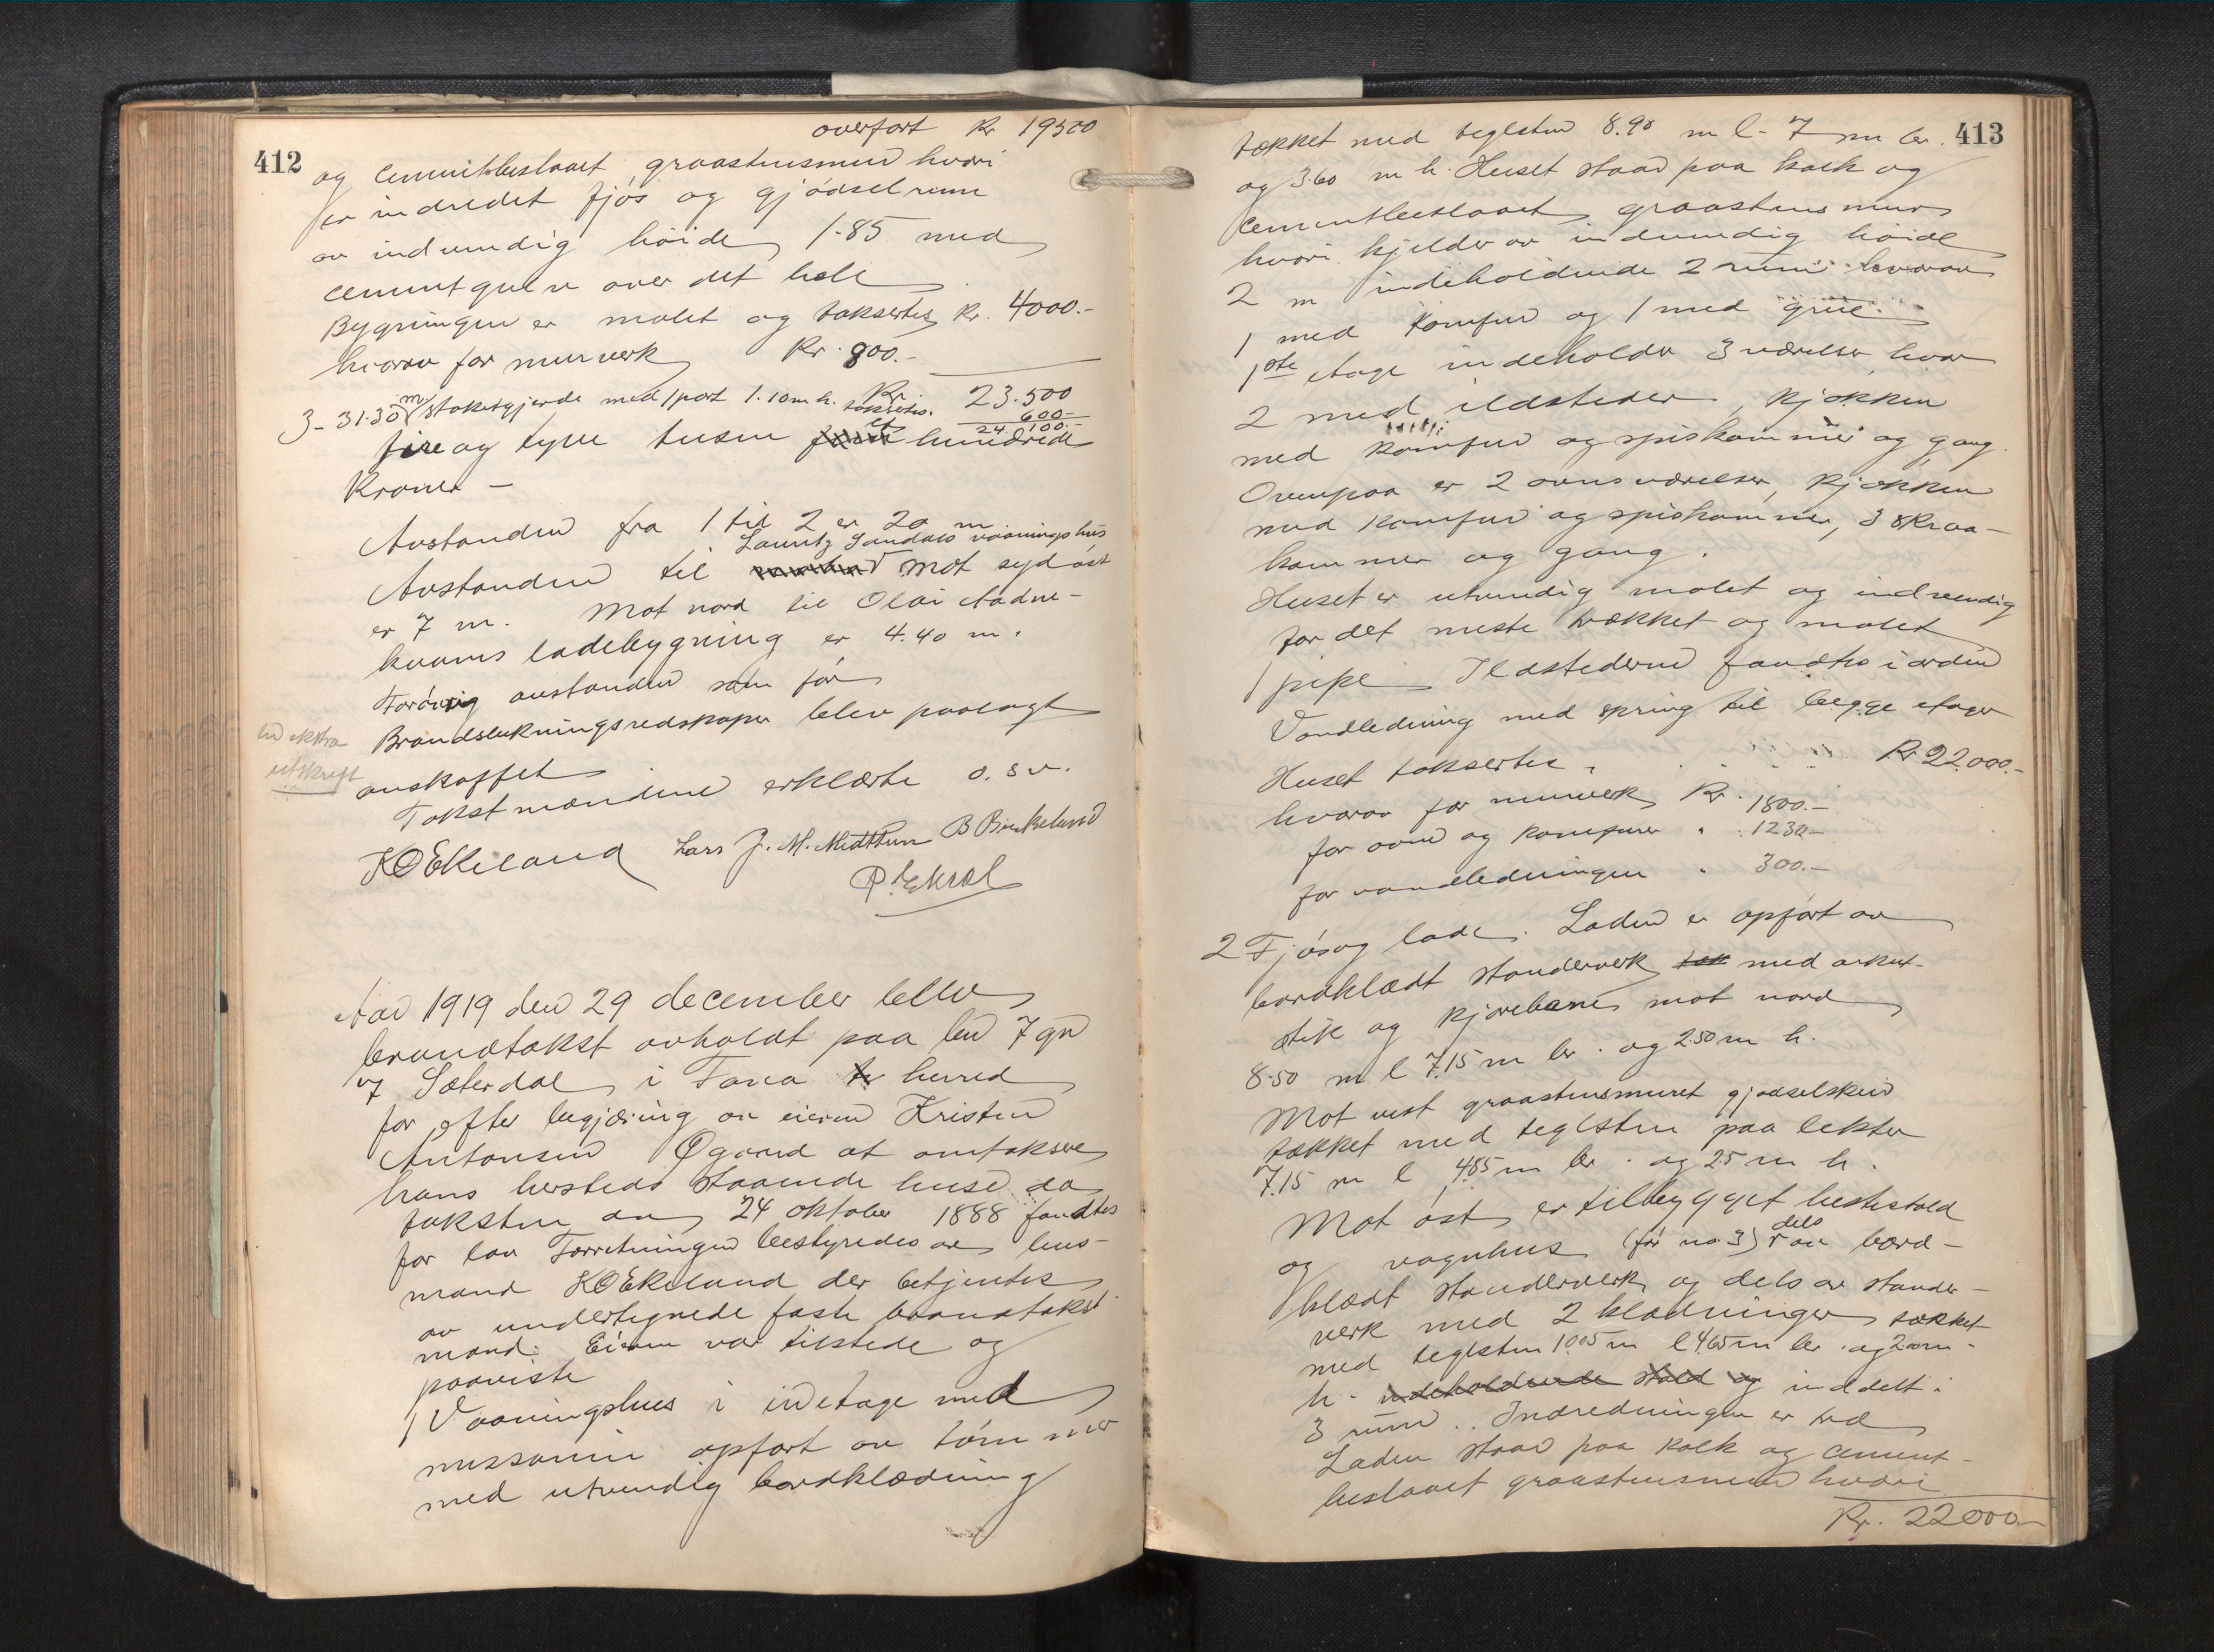 412
overført Kr 19500
og cementbeslaaet graastensmur hvori
er indredet fjøs og gjødselrum
av indvendig høide 1.85 med
cementgulv over det hele
Bygningen er malet og taksertes Kr. 4000.-
hvorav for murverk Kr. 900.-
3- 31.30 m stakitgjerde med 1 port 1.10 m h. taksertes. Kr. 23.500
600.-
24.100.-
fire og tyve tusen et hundrede
Kroner -
Avstanden fra 1 til 2 er 20 m
Lauritz Sandals vaaningshus
Avstanden til mot sydøst
er 7 m. Mot nord til Olai Aadne-
kvams ladebygning er 4.40 m.
Forøvrig avstanden som før
Brandslukningsredskaper blev paalagt
en ekstra
utskrift
anskaffet
Takstmændene erklærte o.s.v.
K O Ekeland Lars J. M. Midttun B Birkeland
P. Ekrol
Aar 1919 den 29 december blev
brandtakst avholdt paa br 7 gn
7 Sæterdal i Fana herred
for efter begjæring av eieren Kristen
Antonsen Øgaard at omtaksere
hans hersteds staaende huse da
taksten av 24 oktober 1888 fandtes
for lav Forretningen bestyredes av lens-
mand K O Ekeland der betjentes
av undertegnede faste brandtakst
mænd. Eieren var tilstede og
paaviste
1 Vaaningshus i en etage med
messanin opført av tømmer
med utvendig bordklædning
413
tækket med teglsten 8.90 m l - 7 m br.
og 3.60 m h. Huset staar paa kalk og
cementbeslaaet graastensmur
hvori kjelder av indvendig høide
2 m indeholdende 2 rum hvorav
1 med komfur og 1 med grue.
1ste etage indeholder 3 værelser hvor
2 med ildsteder, kjøkken
med komfur og spiskammer og gang.
Ovenpaa er 2 ovnsværelser, kjøkken
med komfur og spiskammer, 3 skraa-
kammer og gang.
Huset er utvendig malet og indvendig
for det meste trækket og malet
1 pipe Ildstederne fandtes i orden
Vandledning med spring til begge etager
Huset taksertes . . . . Kr 22.000.-
hvorav for murverk Kr. 1800.-
for ovne og komfurer " 1230.-
for vandledningen " 300.-
2 Fjøs og lade. Laden er opført av
bordklædt standerverk tæk med arkut-
stik og kjørebane mot nord
8.50 m l 7.15 m br. og 2.50 m h.
Mot vest graastensmuret gjødselskur
tækket med teglsten paa lekter
7.15 m l 4.85 m br. og 2.5 m h.
Mot øst er tilbygget hestestald
og vognhus (før no 3) dels av bord-
klædt standerverk og dels av stander-
verk med 2 klædninger tækket
med teglsten 10.05 m l 4.65 m br. og 2.00 m
h. indeholdende stald og inddelt i
3 rum. Indredningen er træ
Laden staar paa kalk og cement-
beslaaet graastensmur hvori
Kr. 22000.-